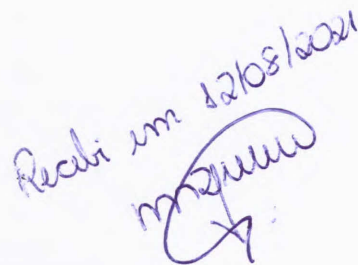 Recebi em 12/08/2021